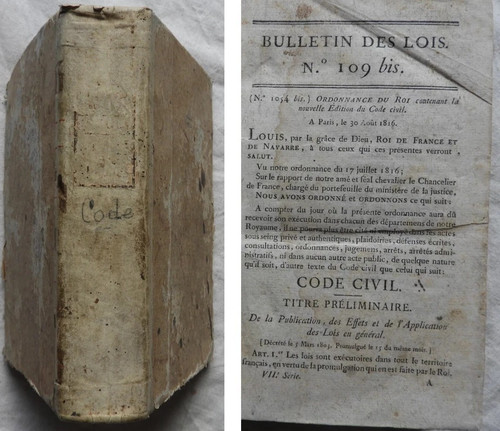 Code
BULLETIN DES LOIS.
N.º 109 bis.
(N.º 1054 bis.) ORDONNANCE DU ROI contenant la
nouvelle Édition du Code civil.
A Paris, le 30 Août 1816.
LOUIS, par la grâce de Dieu, ROI DE FRANCE ET
DE NAVARRE, à tous ceux qui ces présentes verront,
SALUT.
Vu notre ordonnance du 17 juillet 1816;
Sur le rapport de notre amé et féal chevalier le Chancelier
de France, chargé du portefeuille du ministère de la justice,
NOUS AVONS ORDONNÉ ET ORDONNONS ce qui suit:
A compter du jour où la présente ordonnance aura dû
recevoir son exécution dans chacun des départemens de notre
Royaume, il ne pourra plus être cité ni employé dans les actes
sous seing privé et authentiques, plaidoiries, défenses écrites,
consultations, ordonnances, jugemens, arrêts, arrêtés admi-
nistratifs, ni dans aucun autre acte public, de quelque nature
qu'il soit, d'autre texte du Code civil que celui qui suit:
CODE CIVIL.
TITRE PRÉLIMINAIRE.
De la Publication, des Effets et de l'Application
des Lois en général.
[Décrété le 5 Mars 1803. Promulgué le 15 du même mois.]
ART. 1.er Les lois sont exécutoires dans tout le territoire
français, en vertu de la promulgation qui en est faite par le Roi.
VII.e Série. A